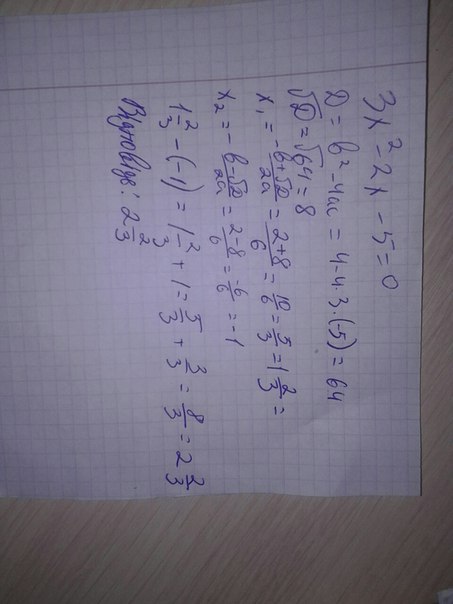 3x² - 2x - 5 = 0
D = b² - 4ac = 4 - 4·3·(-5) = 64
√D = √64 = 8
x₁ = (-b+√D)/2a = (2+8)/6 = 10/6 = 5/3 = 1 2/3 =
x₂ = (-b-√D)/2a = (2-8)/6 = -6/6 = -1
1 2/3 - (-1) = 1 2/3 + 1 = 5/3 + 3/3 = 8/3 = 2 2/3
Відповідь: 2 2/3